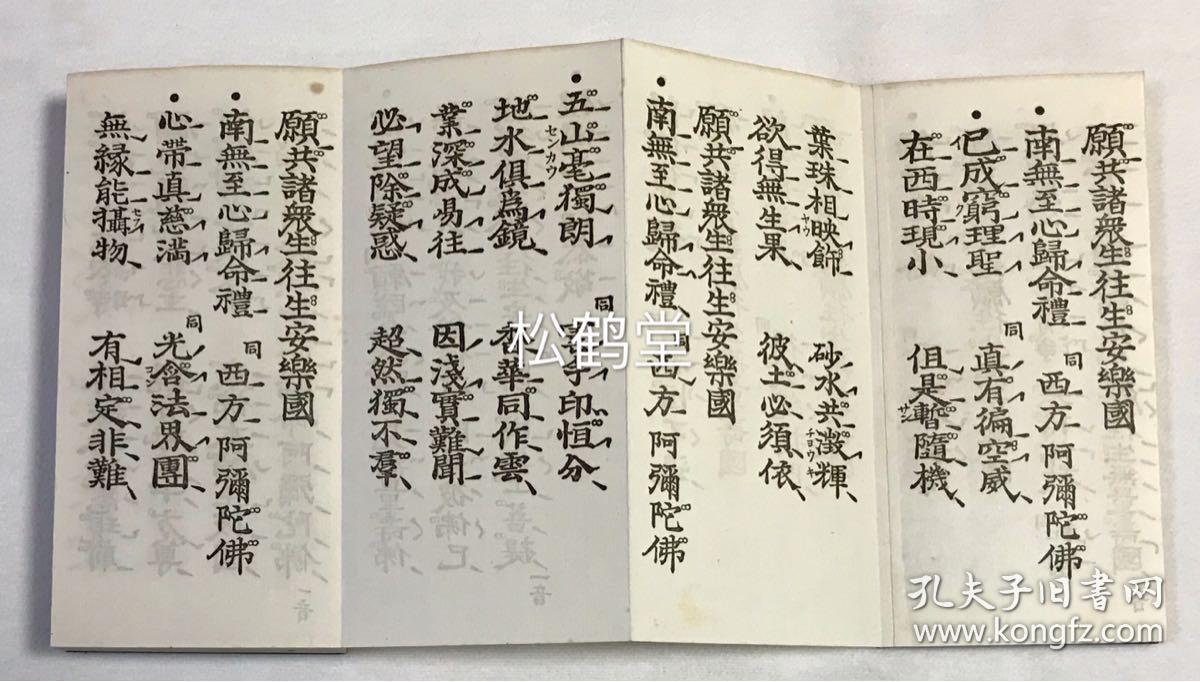 願共諸衆生往生安樂國
南無至心歸命禮 同 西方 阿彌陀佛
已成窮理聖 同 真有徧空威
ク
在西時現小 但是暫隨機
サン
葉珠相映飾 砂水共澄輝
ヤウ チヨウキ
欲得無生果 彼土必須依
願共諸衆生往生安樂國
南無至心歸命禮 同 西方 阿彌陀佛
五山毫獨朗 同 手印恒分
センカウ
地水俱爲鏡 華同作雲
業深成易往 因淺實難聞
必望除疑惑 超然獨不羣
願共諸衆生往生安樂國
南無至心歸命禮 同 西方 阿彌陀佛
心帶真慈滿 同 光含法界團
コン
無緣能攝物 有相定非難
セフ
松鹤堂
孔夫子旧书网
www.kongfz.com